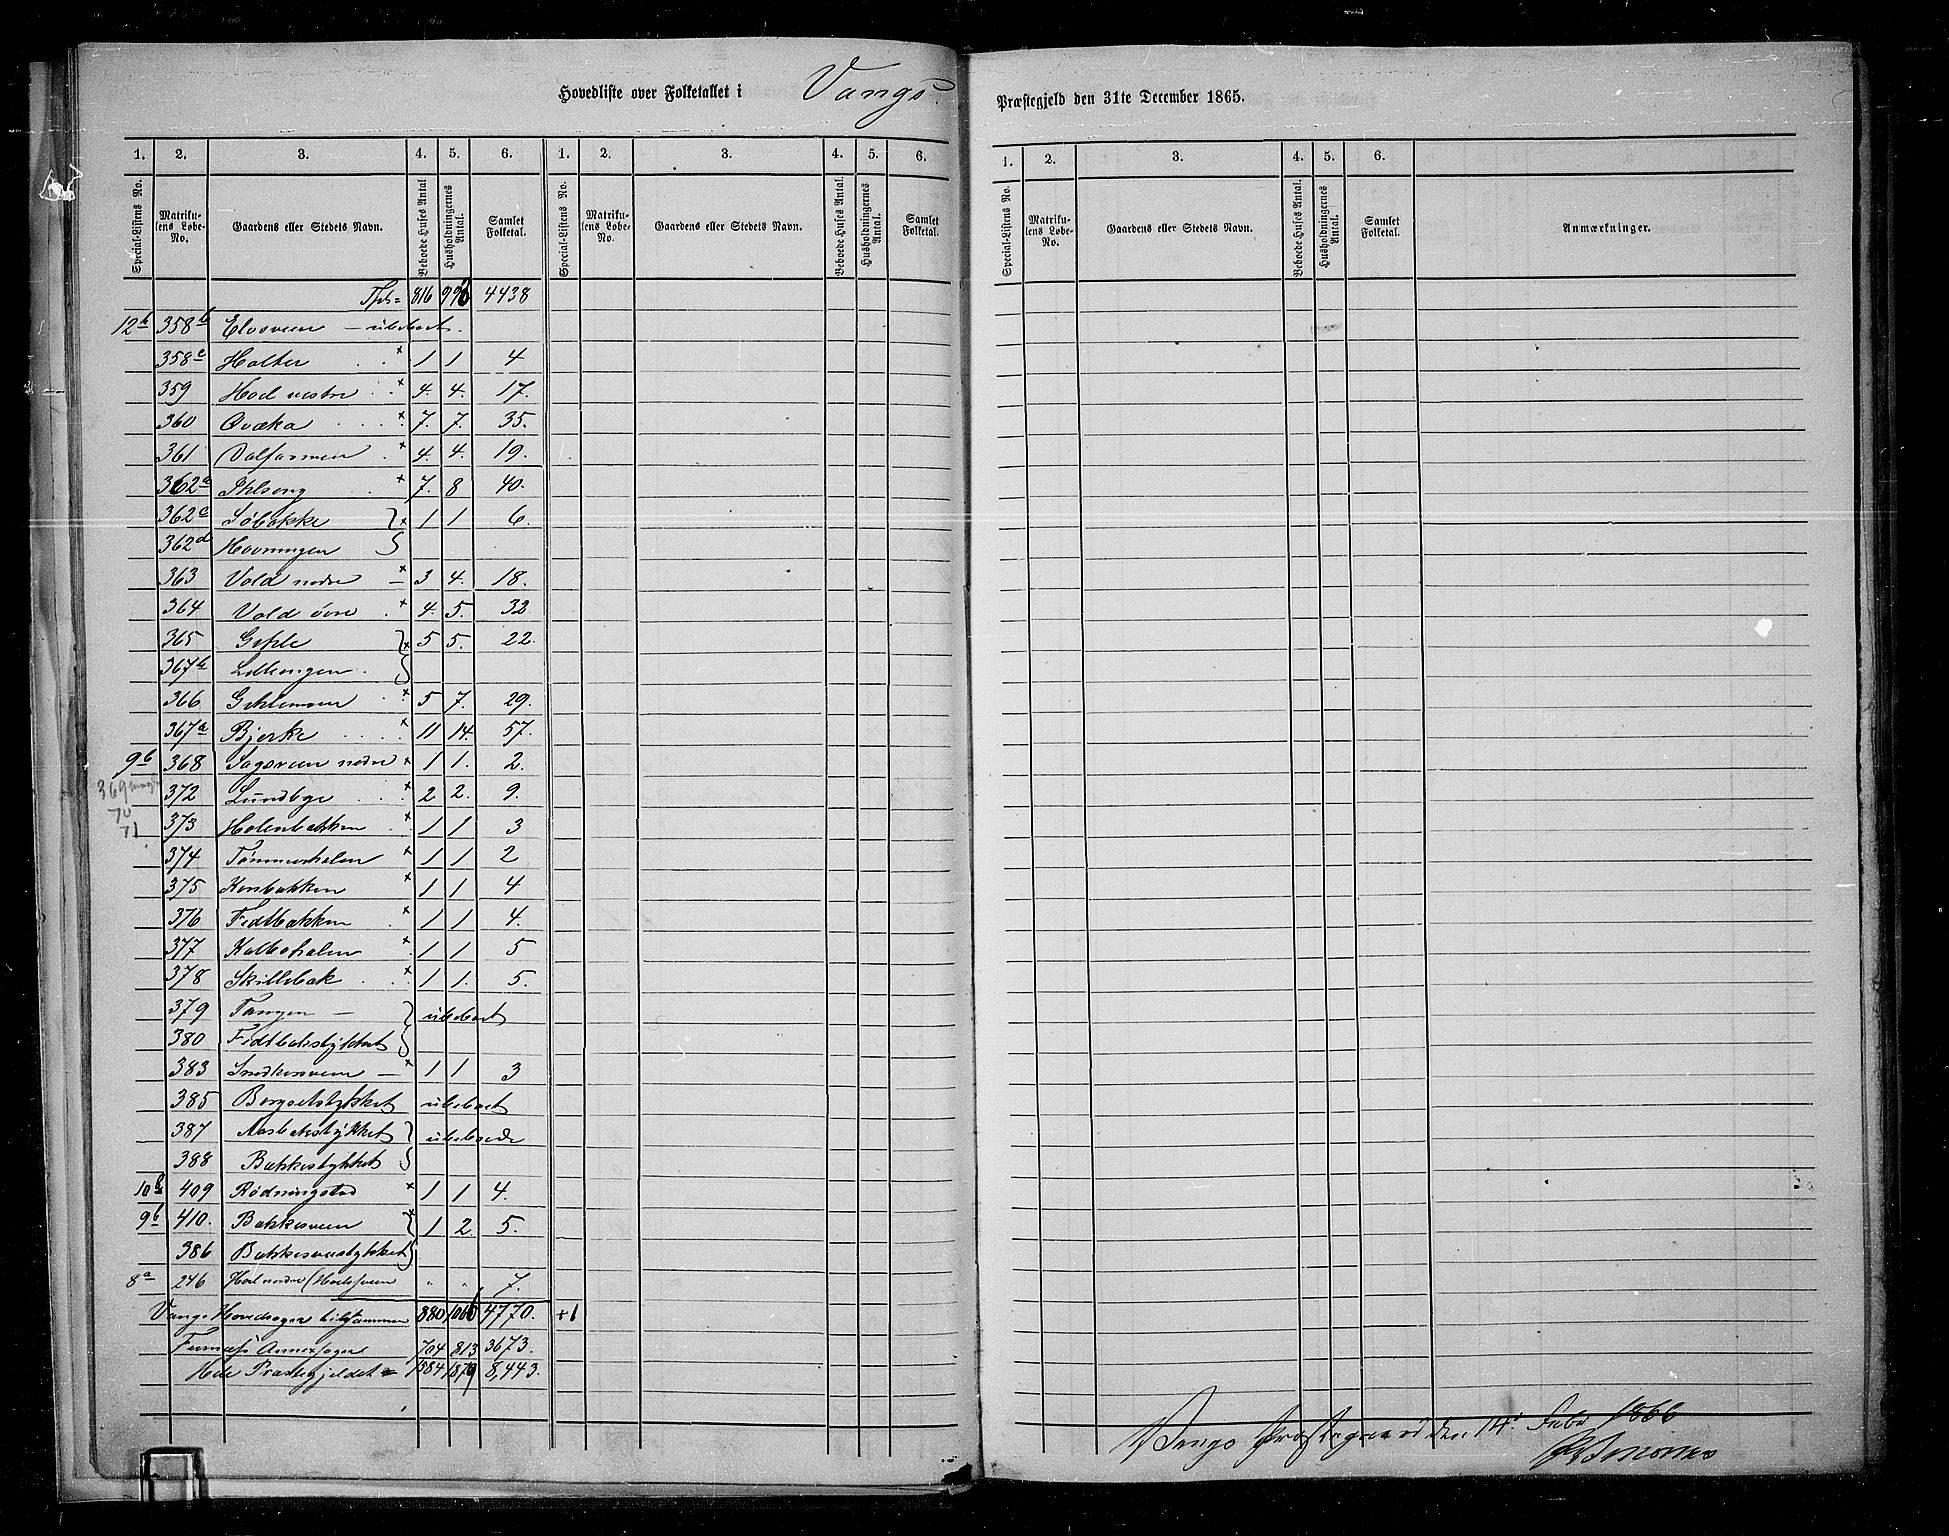 Hovedliste over Folketallet i Vangs Præstegjeld den 31te December 1865.
1. 2. 3. 4. 5. 6. 1. 2. 3. 4. 5. 6.
Special-Listens No. Matrikulens Løbe-No. Gaardens eller Stedets Navn. Beboede Huses Antal Husholdningernes Antal. Samlet Folketal. Special-Listens No. Matrikulens Løbe-No. Gaardens eller Stedets Navn. Beboede Huses Antal. Husholdningernes Antal. Samlet Folketal.
816 996 4438
12b 358b Elvsveen – ubeboet.
358c Holter × 1 1 4
359 Hoel vestre × 4. 4. 17.
360 Qvæka × 7. 7. 35.
361 × 4. 4. 19.
362a × 7. 8 40.
362c Søbakke } × 1 1 6.
362d Hovningen
363 Vold nedre × – 3 4. 18.
364 Vold øvre × 4. 5. 32
365 } × 5 5. 22.
367b Lilleengen
366 × 5 7. 29.
367a Bjerke × 11 14. 57.
9b 368 Sagsveen nedre × 1 1. 2.
369 mangler
70
71
372 Lundbye × 2 2. 9.
373 Holenbakken × 1 1 3
374 Tømmerholen × 1 1 2
375 Korsbakken × 1 1 4
376 Fedtbakken × 1 1 4.
377 × 1 1 5
378 Skillebæk × 1 1. 5.
379 Tangen – } ubeboet
380
383 Snedkersveen – × 1 1 3
385 ubeboet
387 } ubeboede
388 Bakkestykket
10b 409 Rødningstad × 1 1 4.
9b 410. Bakkesveen { × 1 2 5.
386 Bakkesveestykket
8a 246 Hoel nordre (Hoelsveen „ „ 7.
Vangs Hovedsogn tilsammen 880 1066 4770. +1
Furnæs Annexsogn 704 813 3673.
Hele Præstegjeldet = 1584 1879 8,443.
1. 2. 3. 4. 5. 6.
Special-Listens No. Matrikulens Løbe-No. Gaardens eller Stedets Navn. Beboede Huses Antal. Husholdningernes Antal. Samlet Folketal. Anmærkninger.
Vangs Præstegaard den 14. Febr 1866